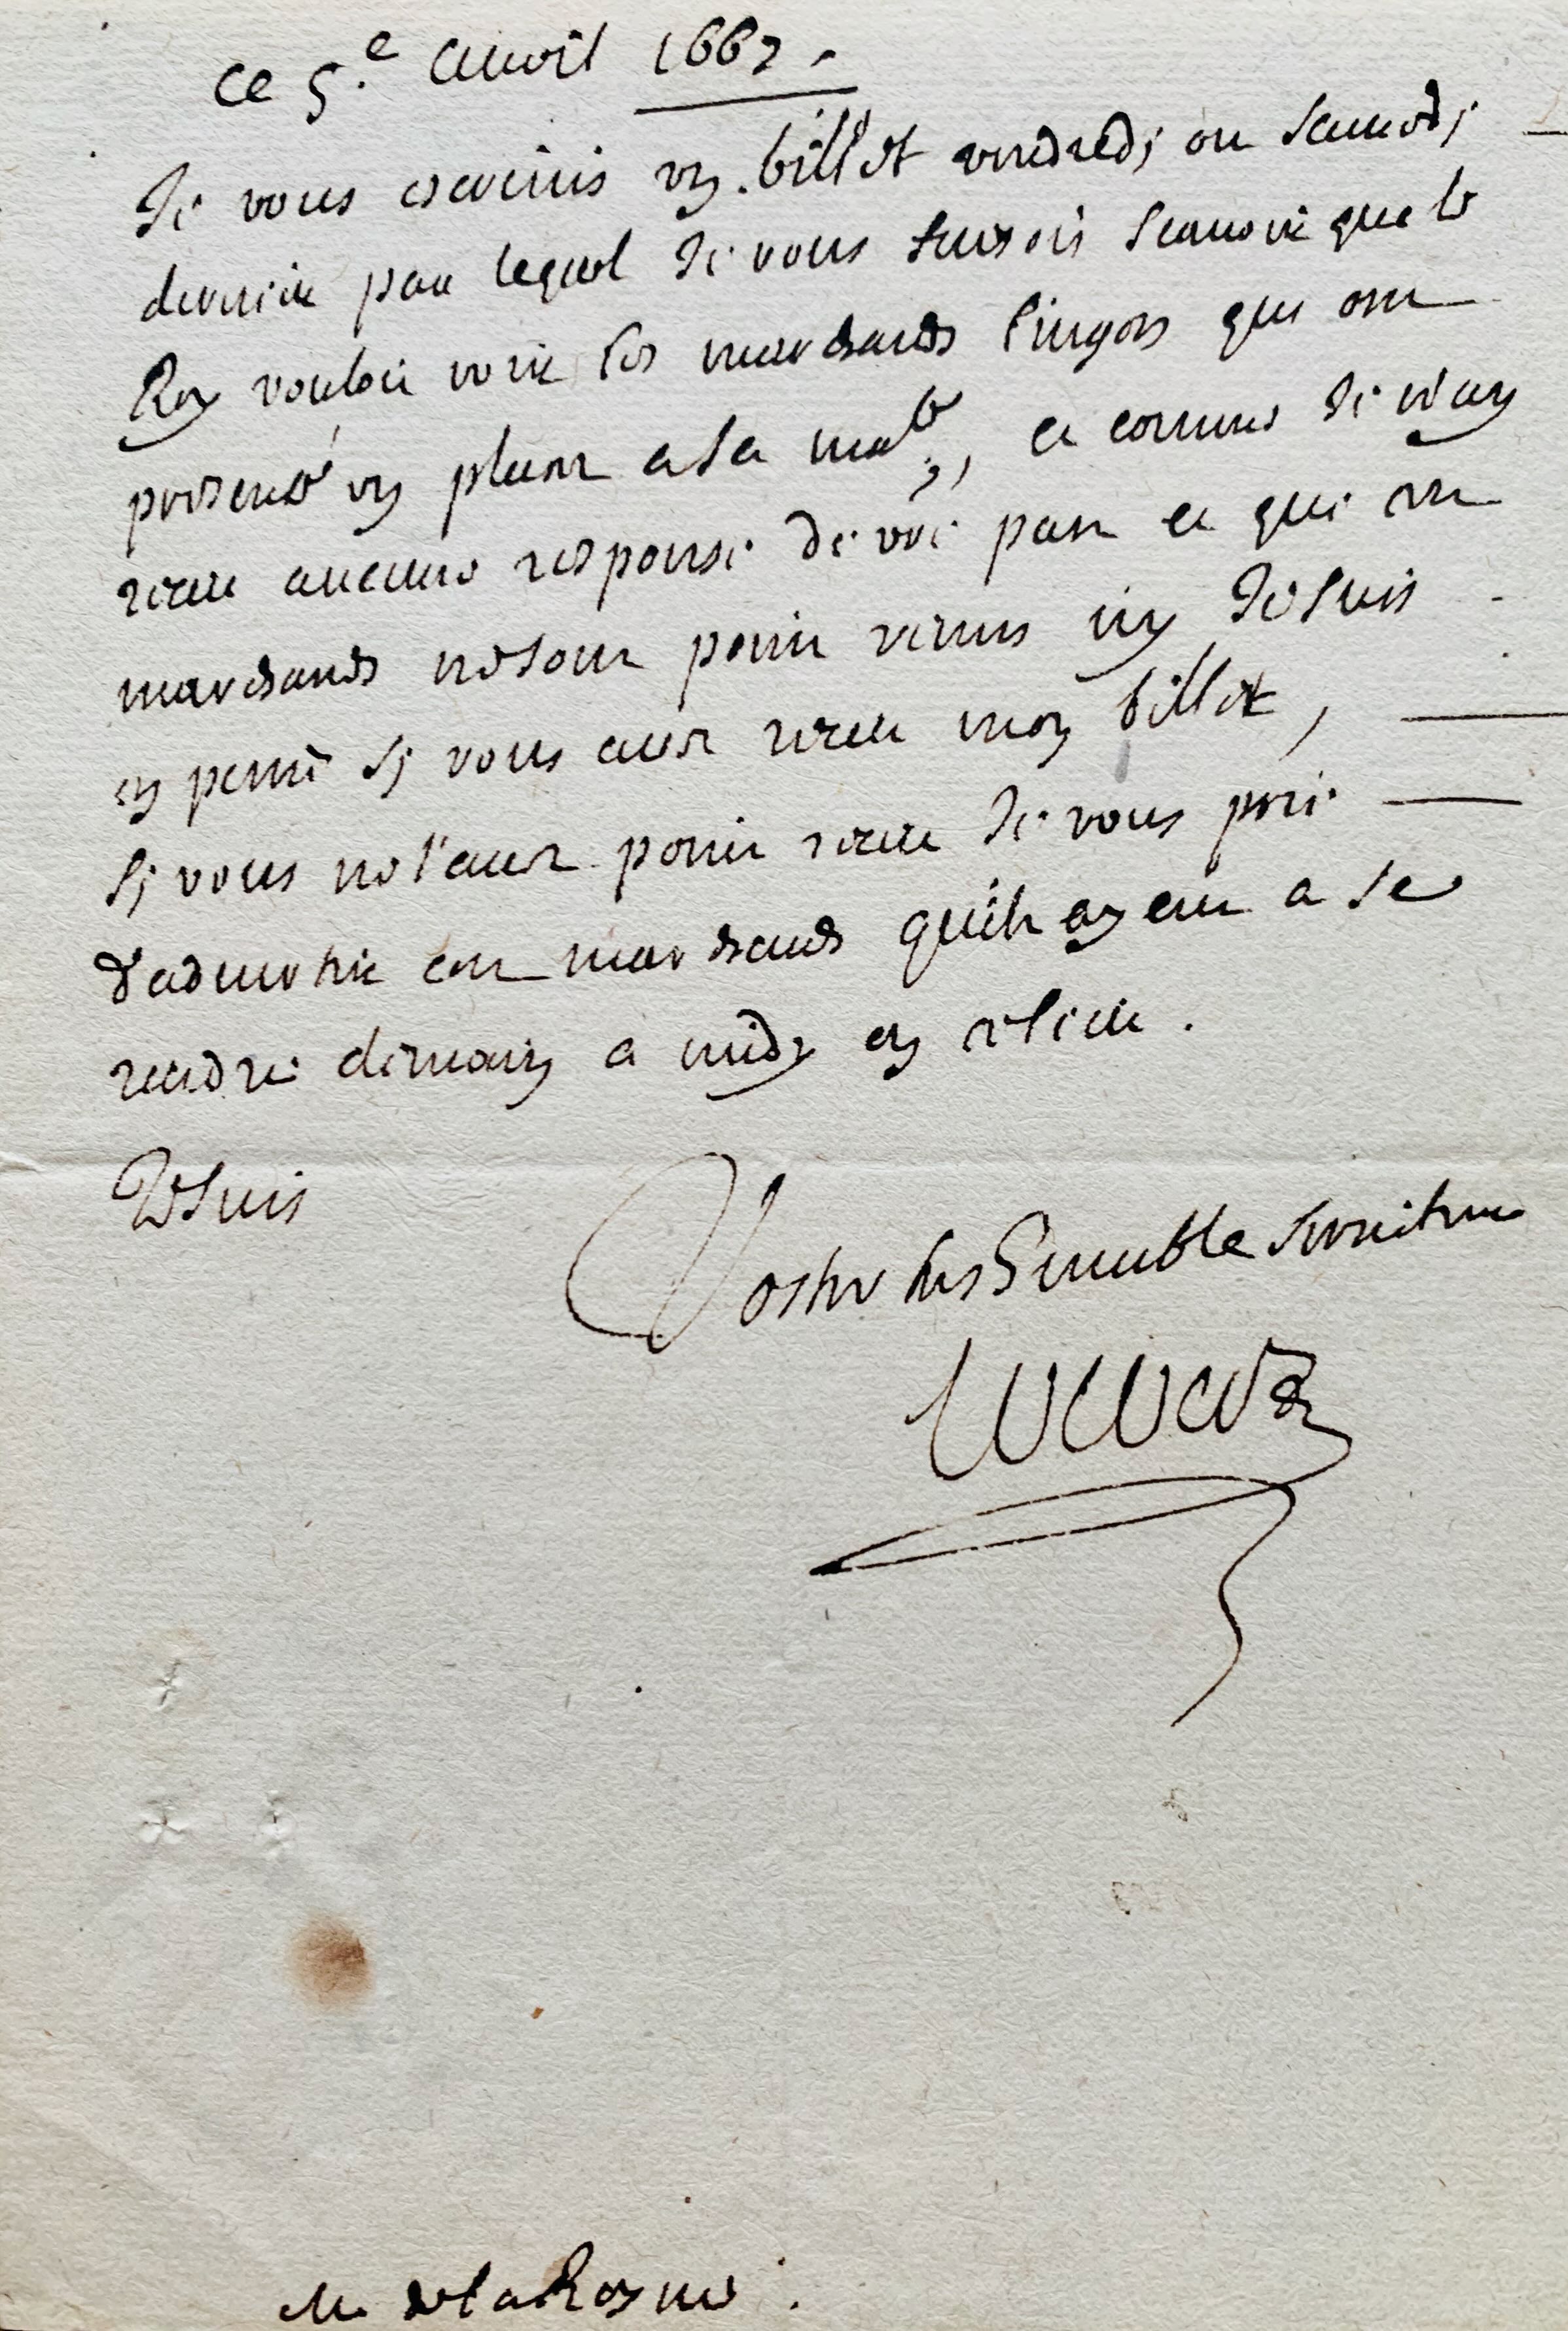 Ce 5.e Auvril 1667.
Je vous escrivis un billet vendredi ou samedi
dernier par lequel Je vous faisois scauoir que le
Roy vouloit voir les marchands lingers qui ont
presenté un placet a sa ma.te, et comme Je n'ay
receu aucune response de vre part et que ces
marchands ne sont point venus icy Je suis
en peine si vous avez receu mon billet,
si vous ne l'avez point receu Je vous prie
d'advertir ces marchands qu'ils ayent a se
rendre demain a midy en
Je suis
Vostre tres humble serviteur
M. de la Reynie.